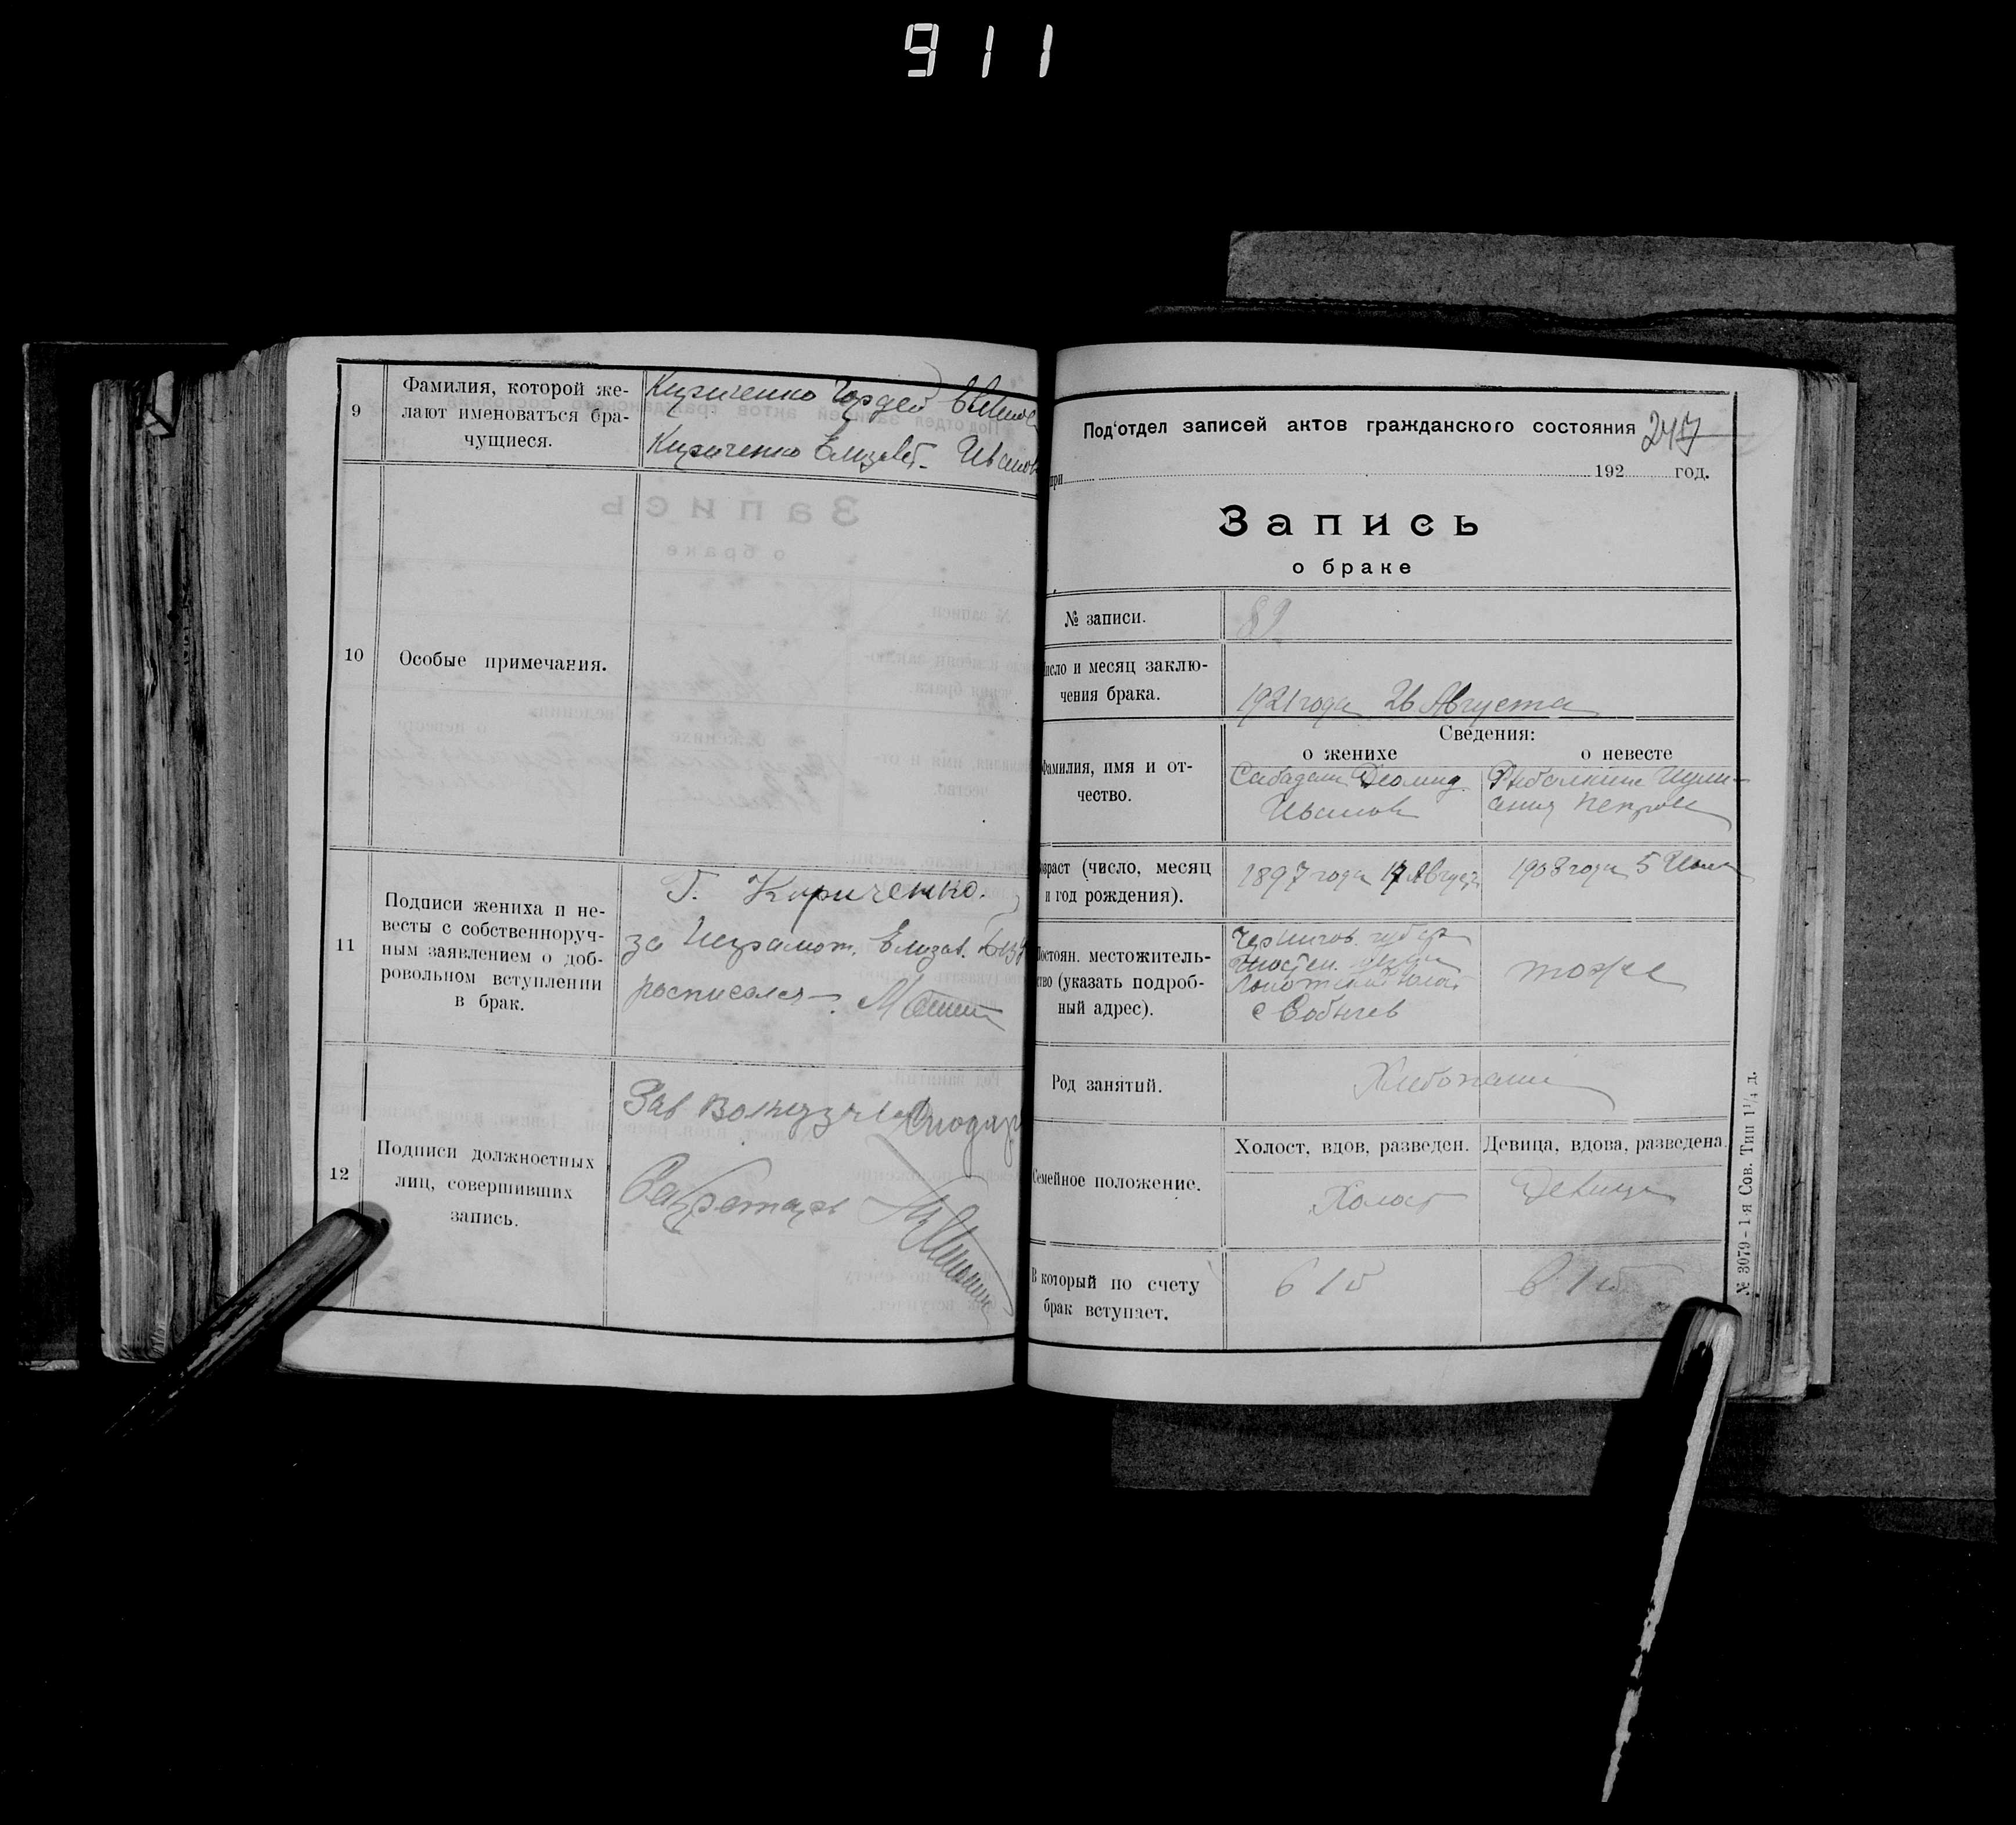 911
9
Фамилия, которой же-
лают именоваться бра-
чущиеся.
Кириченко Гордей
Кириченко Елизавет. Иванов
10
Особые примечания.
11
Подписи жениха и не-
весты с собственноруч-
ным заявлением о доб-
ровольном вступлении
в брак.
Г. Кириченко.
за Неграмот. Елизав.
росписался
12
Подписи должностных
лиц, совершивших
запись.
Зав
Секретарь
Под'отдел записей актов гражданского состояния 247
при 192 год.
Запись
о браке
№ записи.
89
исло и месяц заклю-
чения брака.
1921 года 26 Августа
Сведения:
о женихе
о невесте
Фамилия, имя и от-
чество.
Деомид
Иванов
Петров
озраст (число, месяц
и год рождения).
1897 года 17 Август
1908 года 5
Постоян. местожитель-
ство (указать подроб-
ный адрес).
Чернигов. губер
с Собычев
тоже
Род занятий.
Хлебопашц
Семейное положение.
Холост, вдов, разведен.
Девица, вдова, разведена.
Холост
Девица
В который по счету
брак вступает.
в 1й
в 1й
№ 3079 - 1-я Сов. Тип 1 1/4 д.